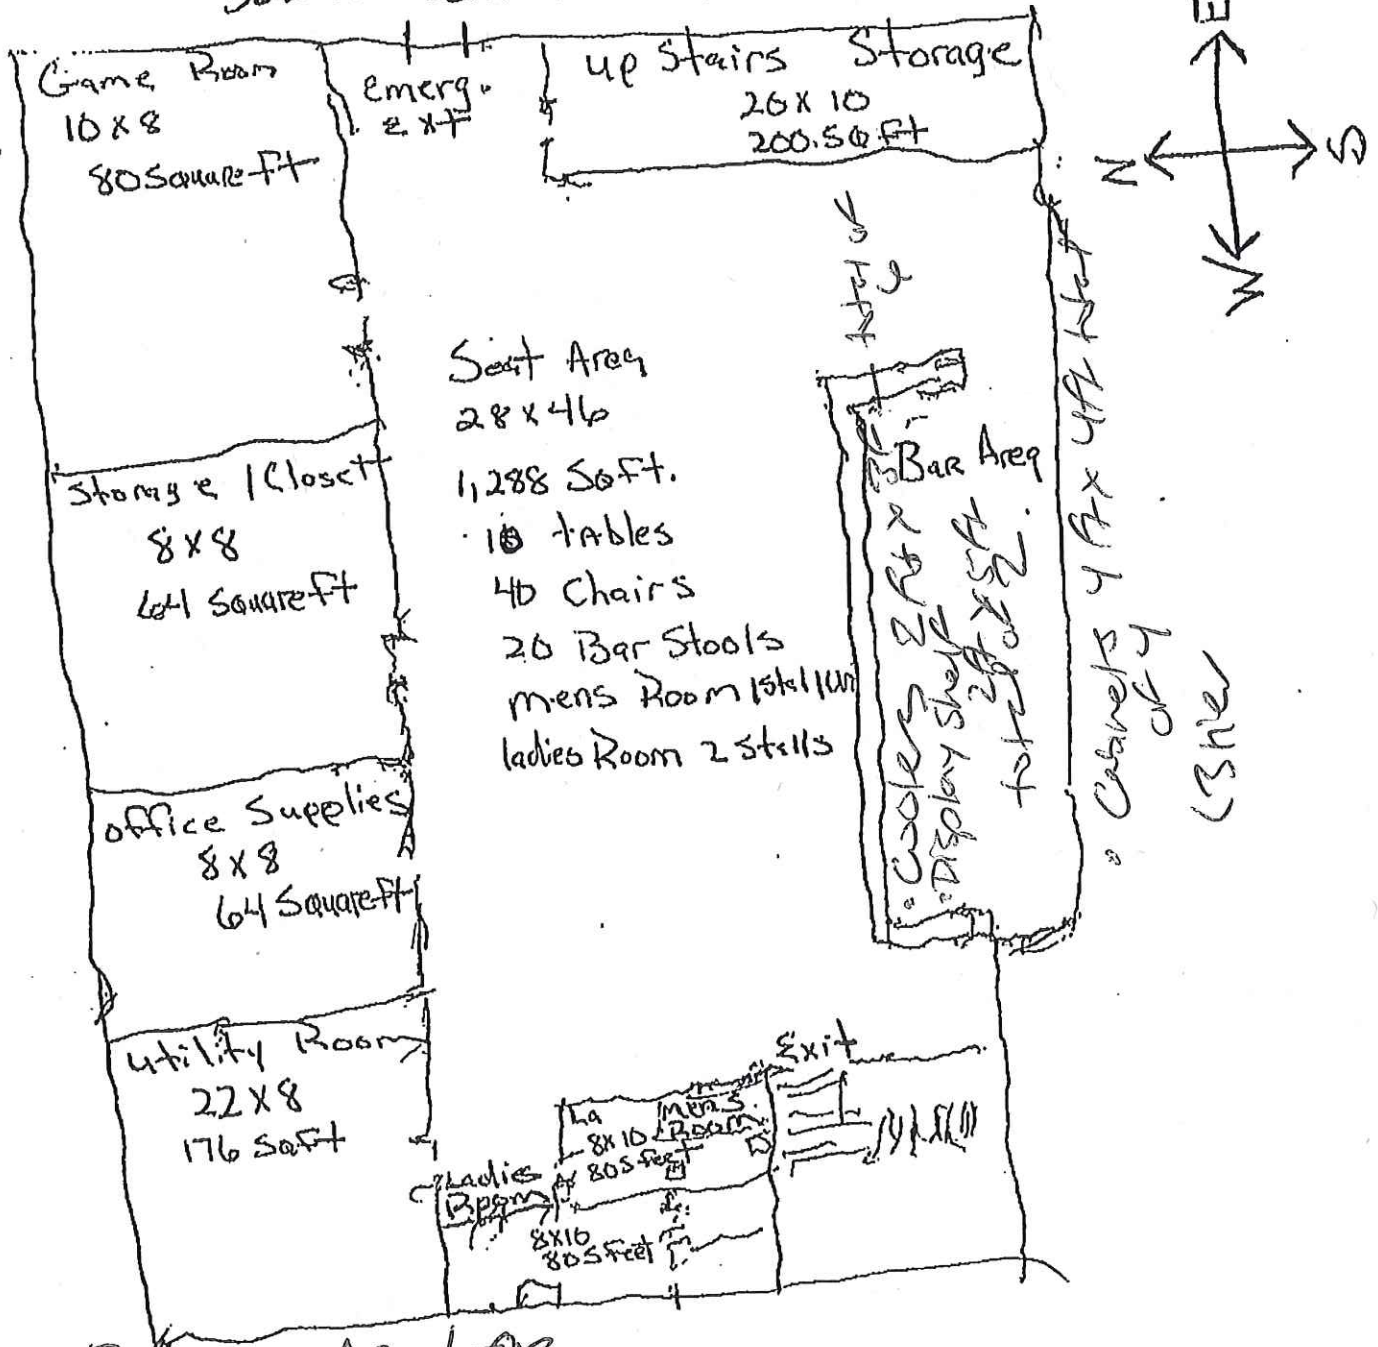 Game Room
10 x 8
80 Square ft
Emerg.
Ext
up Stairs Storage
20 x 10
200.SQ ft
E
N
S
W
Seat Area
28 x 46
1,288 Sqft.
10 tables
40 Chairs
20 Bar Stools
mens Room 1 Stall 1 Uri
ladies Room 2 Stalls
Storage / Closet
8 x 8
64 Square ft
office Supplies
8 x 8
64 Square ft
Utility Room
22 x 8
176 Sqft
Bar Area
total of
Coolers 2 ft x 5ft
Display Shelf
2ft x 5ft
total of 2
Cabinets 4 ft x 4ft total
of 4
Exit
La
Mens
Room
8x10
80 S feet
Ladies
Room
8x10
80 S feet